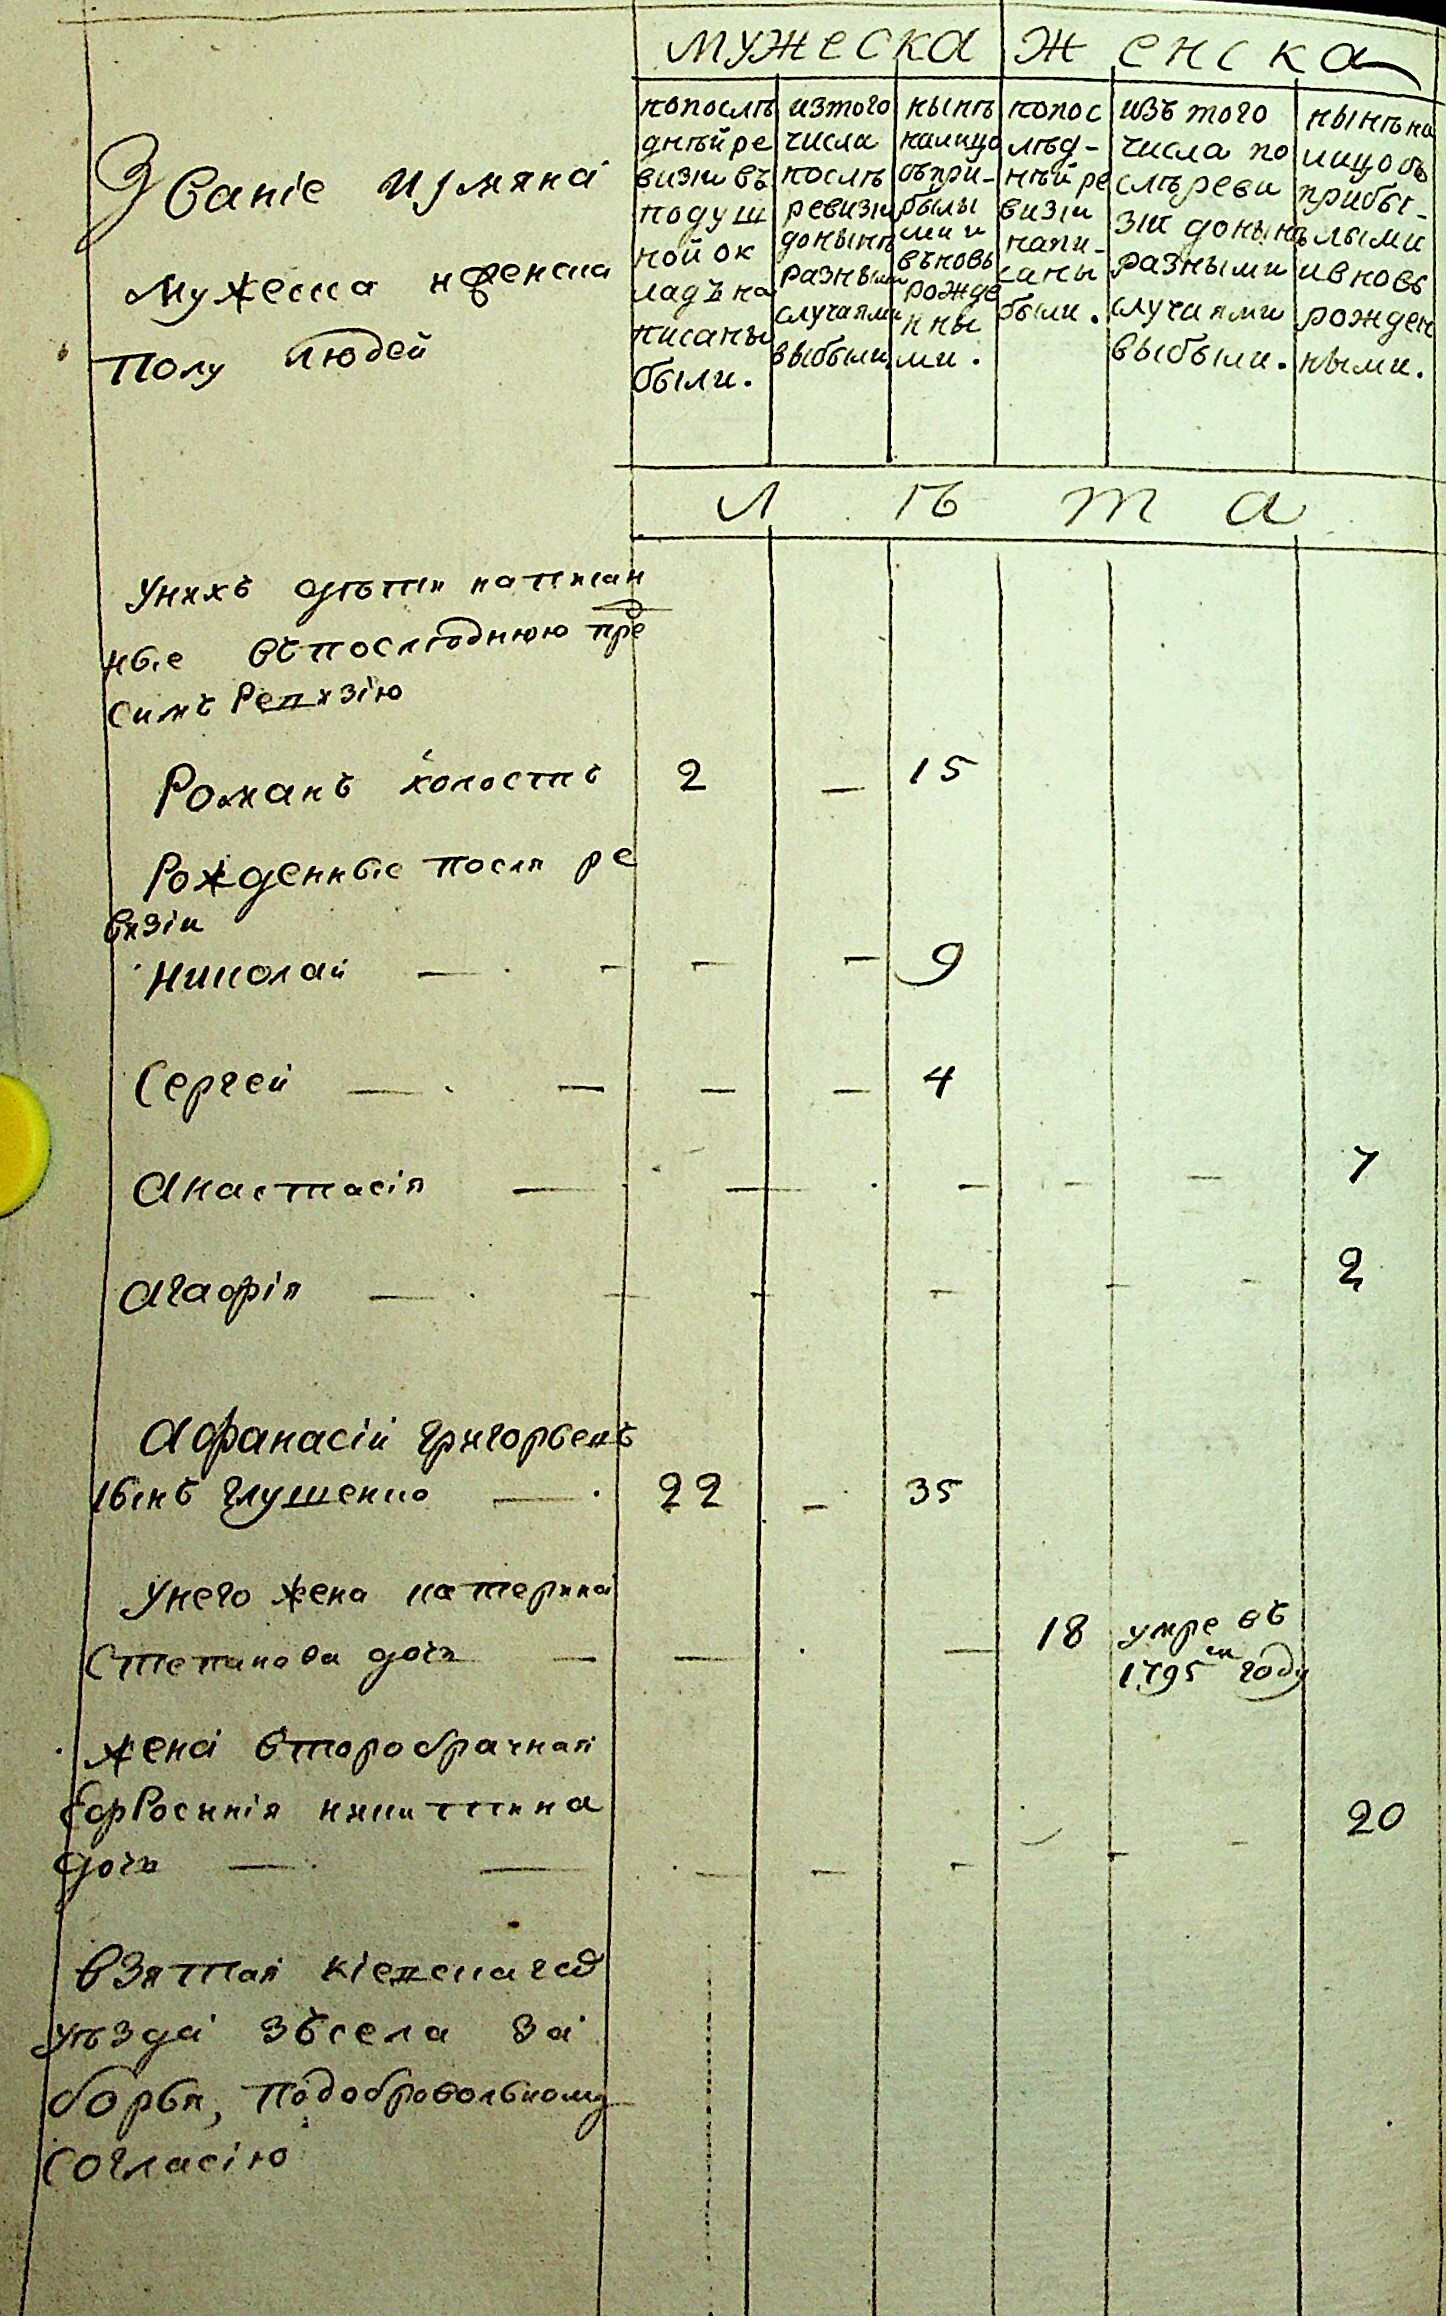 мужеска женска
Званіе и имяна
мужеска и женска
полу людей
попослѣ
днѣй ре
визіи въ
подуш
ной ок
ладъ на
писаны
были.
изтого
числа
послѣ
ревизіи
донынѣ
разными
случаями
выбыли.
нынѣ
налицо
съпри-
былы
ми и
вновь
рожде
нны
ми.
попос
лѣд-
нѣй ре
визіи
напи-
саны
были.
изъ того
числа по
слѣ реви
зіи донынѣ
разными
случаями
выбыли.
нынѣ на
лицо съ
прибы-
лыми
ивновь
рожден
ными.
лѣта
Унихъ дѣти написан
ные въпослѣднюю пред
симъ Ревизію
Романъ холостъ 2 — 15
Рожденные после ре
визіи
Николай — — — — 9
Сергей — — — — 4
Анастасія — — — — — 7
Агафія — — — — — — 2
Афанасій Григорьевъ
сынъ Глушенко — 22 — 35
Унего жена катерина
Степанова дочь — — — 18 умре въ
1795м году
жена второбрачная
Ефросинія никитина 20
дочь — — — — — —
взятая кіевскаго
уѣзда зъсела За
борья, подобровольному
согласію